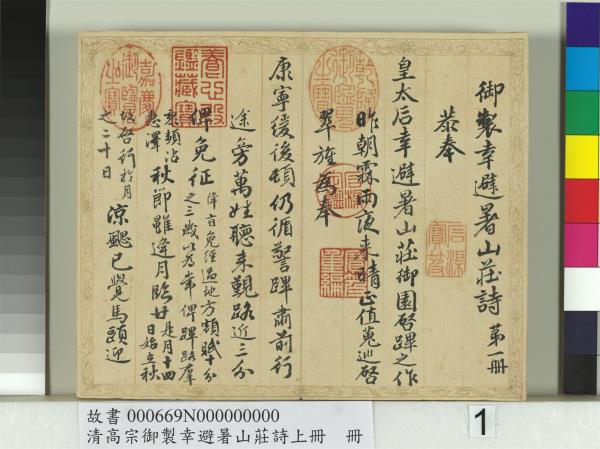 御製幸避暑山莊詩 第一冊
恭奉
皇太后幸避暑山莊御園啓蹕之作
昨朝霖雨夜来晴正值蒐巡啓
翠旌為奉
康寧緩後頓仍循警蹕肅前行
途旁萬姓聽来覲路近三分
俾免征
降旨免經過地方額賦十分
之三歲以為常俾蹕路羣
黎頻沾
惠澤
秋節雖逢月臨廿
是月十四
日始立秋
啓行於月
之二十日
涼颸已覺馬頭迎
乾隆御覽之寶
石渠寶笈
石渠定鑑
寶笈重編
養心殿鑑藏寶
嘉慶御覽之寶
故書 000669N000000000
清高宗御製幸避暑山莊詩上冊 冊
1